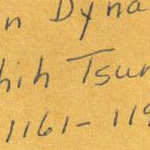 n Dyna
hih Tsun
1161-119